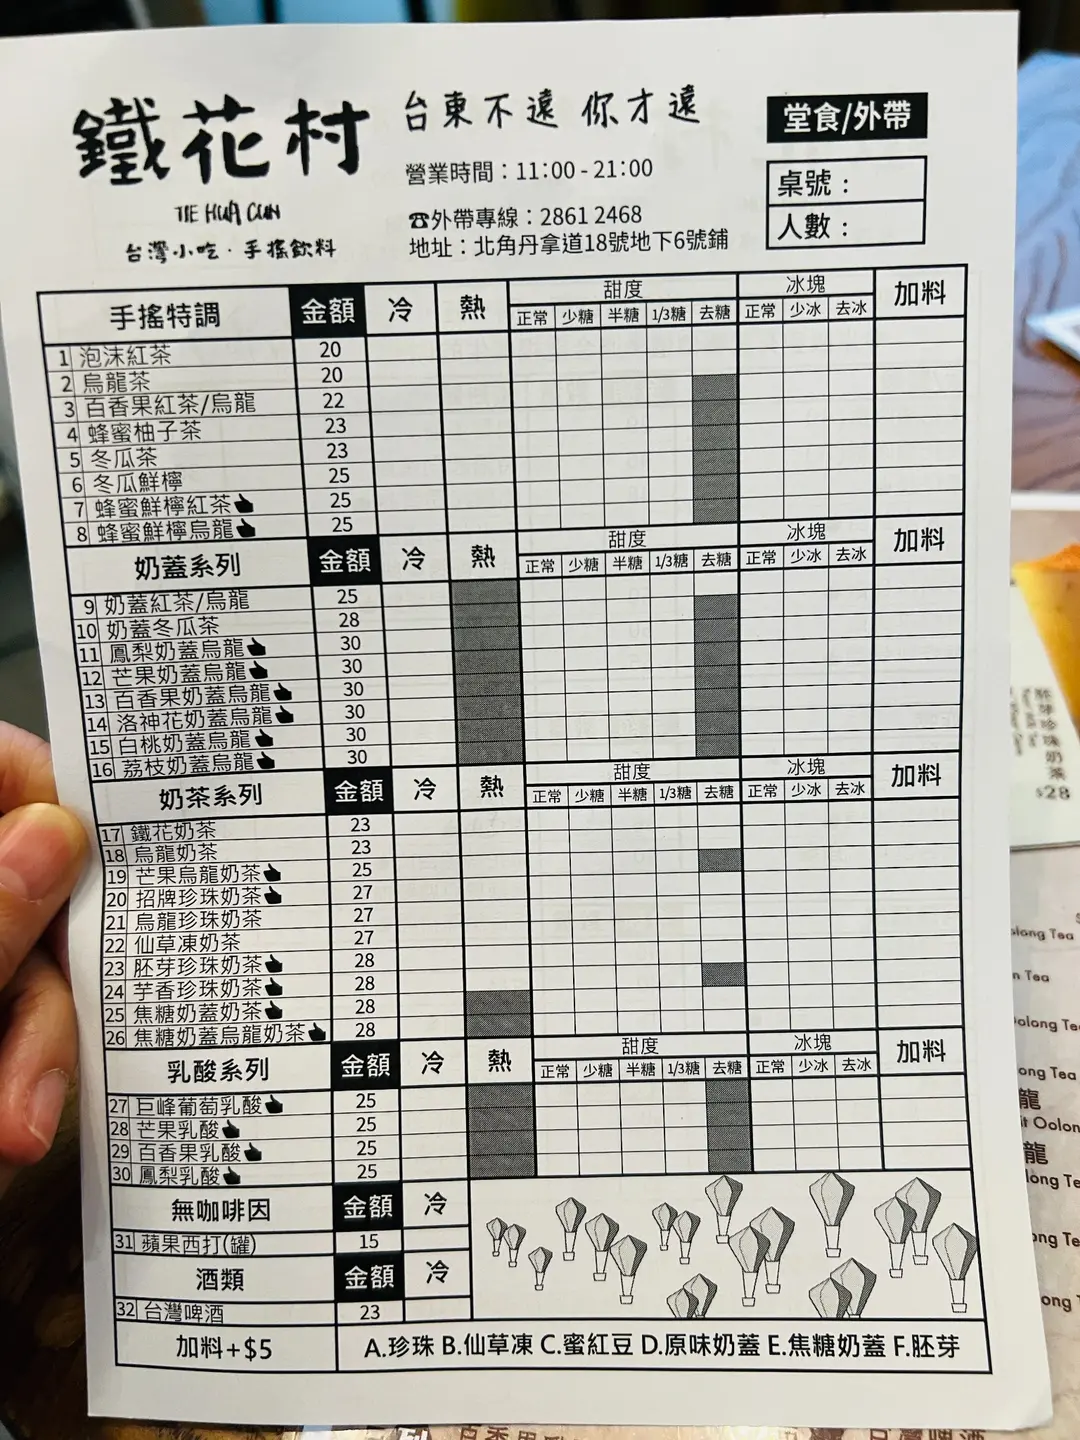 鐵花村
TIE HUA CUN
台灣小吃．手搖飲料
台東不遠 你才遠
營業時間：11:00 - 21:00
☎外帶專線：2861 2468
地址：北角丹拿道18號地下6號鋪
堂食/外帶
桌號：
人數：
手搖特調 金額 冷 熱 甜度 冰塊 加料
正常 少糖 半糖 1/3糖 去糖 正常 少冰 去冰
1 泡沫紅茶 20
2 烏龍茶 20
3 百香果紅茶/烏龍 22
4 蜂蜜柚子茶 23
5 冬瓜茶 23
6 冬瓜鮮檸 25
7 蜂蜜鮮檸紅茶 25
8 蜂蜜鮮檸烏龍 25
奶蓋系列 金額 冷 熱 甜度 冰塊 加料
正常 少糖 半糖 1/3糖 去糖 正常 少冰 去冰
9 奶蓋紅茶/烏龍 25
10 奶蓋冬瓜茶 28
11 鳳梨奶蓋烏龍 30
12 芒果奶蓋烏龍 30
13 百香果奶蓋烏龍 30
14 洛神花奶蓋烏龍 30
15 白桃奶蓋烏龍 30
16 荔枝奶蓋烏龍 30
奶茶系列 金額 冷 熱 甜度 冰塊 加料
正常 少糖 半糖 1/3糖 去糖 正常 少冰 去冰
17 鐵花奶茶 23
18 烏龍奶茶 23
19 芒果烏龍奶茶 25
20 招牌珍珠奶茶 27
21 烏龍珍珠奶茶 27
22 仙草凍奶茶 27
23 胚芽珍珠奶茶 28
24 芋香珍珠奶茶 28
25 焦糖奶蓋奶茶 28
26 焦糖奶蓋烏龍奶茶 28
乳酸系列 金額 冷 熱 甜度 冰塊 加料
正常 少糖 半糖 1/3糖 去糖 正常 少冰 去冰
27 巨峰葡萄乳酸 25
28 芒果乳酸 25
29 百香果乳酸 25
30 鳳梨乳酸 25
無咖啡因 金額 冷
31 蘋果西打(罐) 15
酒類 金額 冷
32 台灣啤酒 23
加料+$5 A.珍珠 B.仙草凍 C.蜜紅豆 D.原味奶蓋 E.焦糖奶蓋 F.胚芽
胚芽珍珠奶茶
$28
Tea
Tea
龍
龍
台灣啤酒